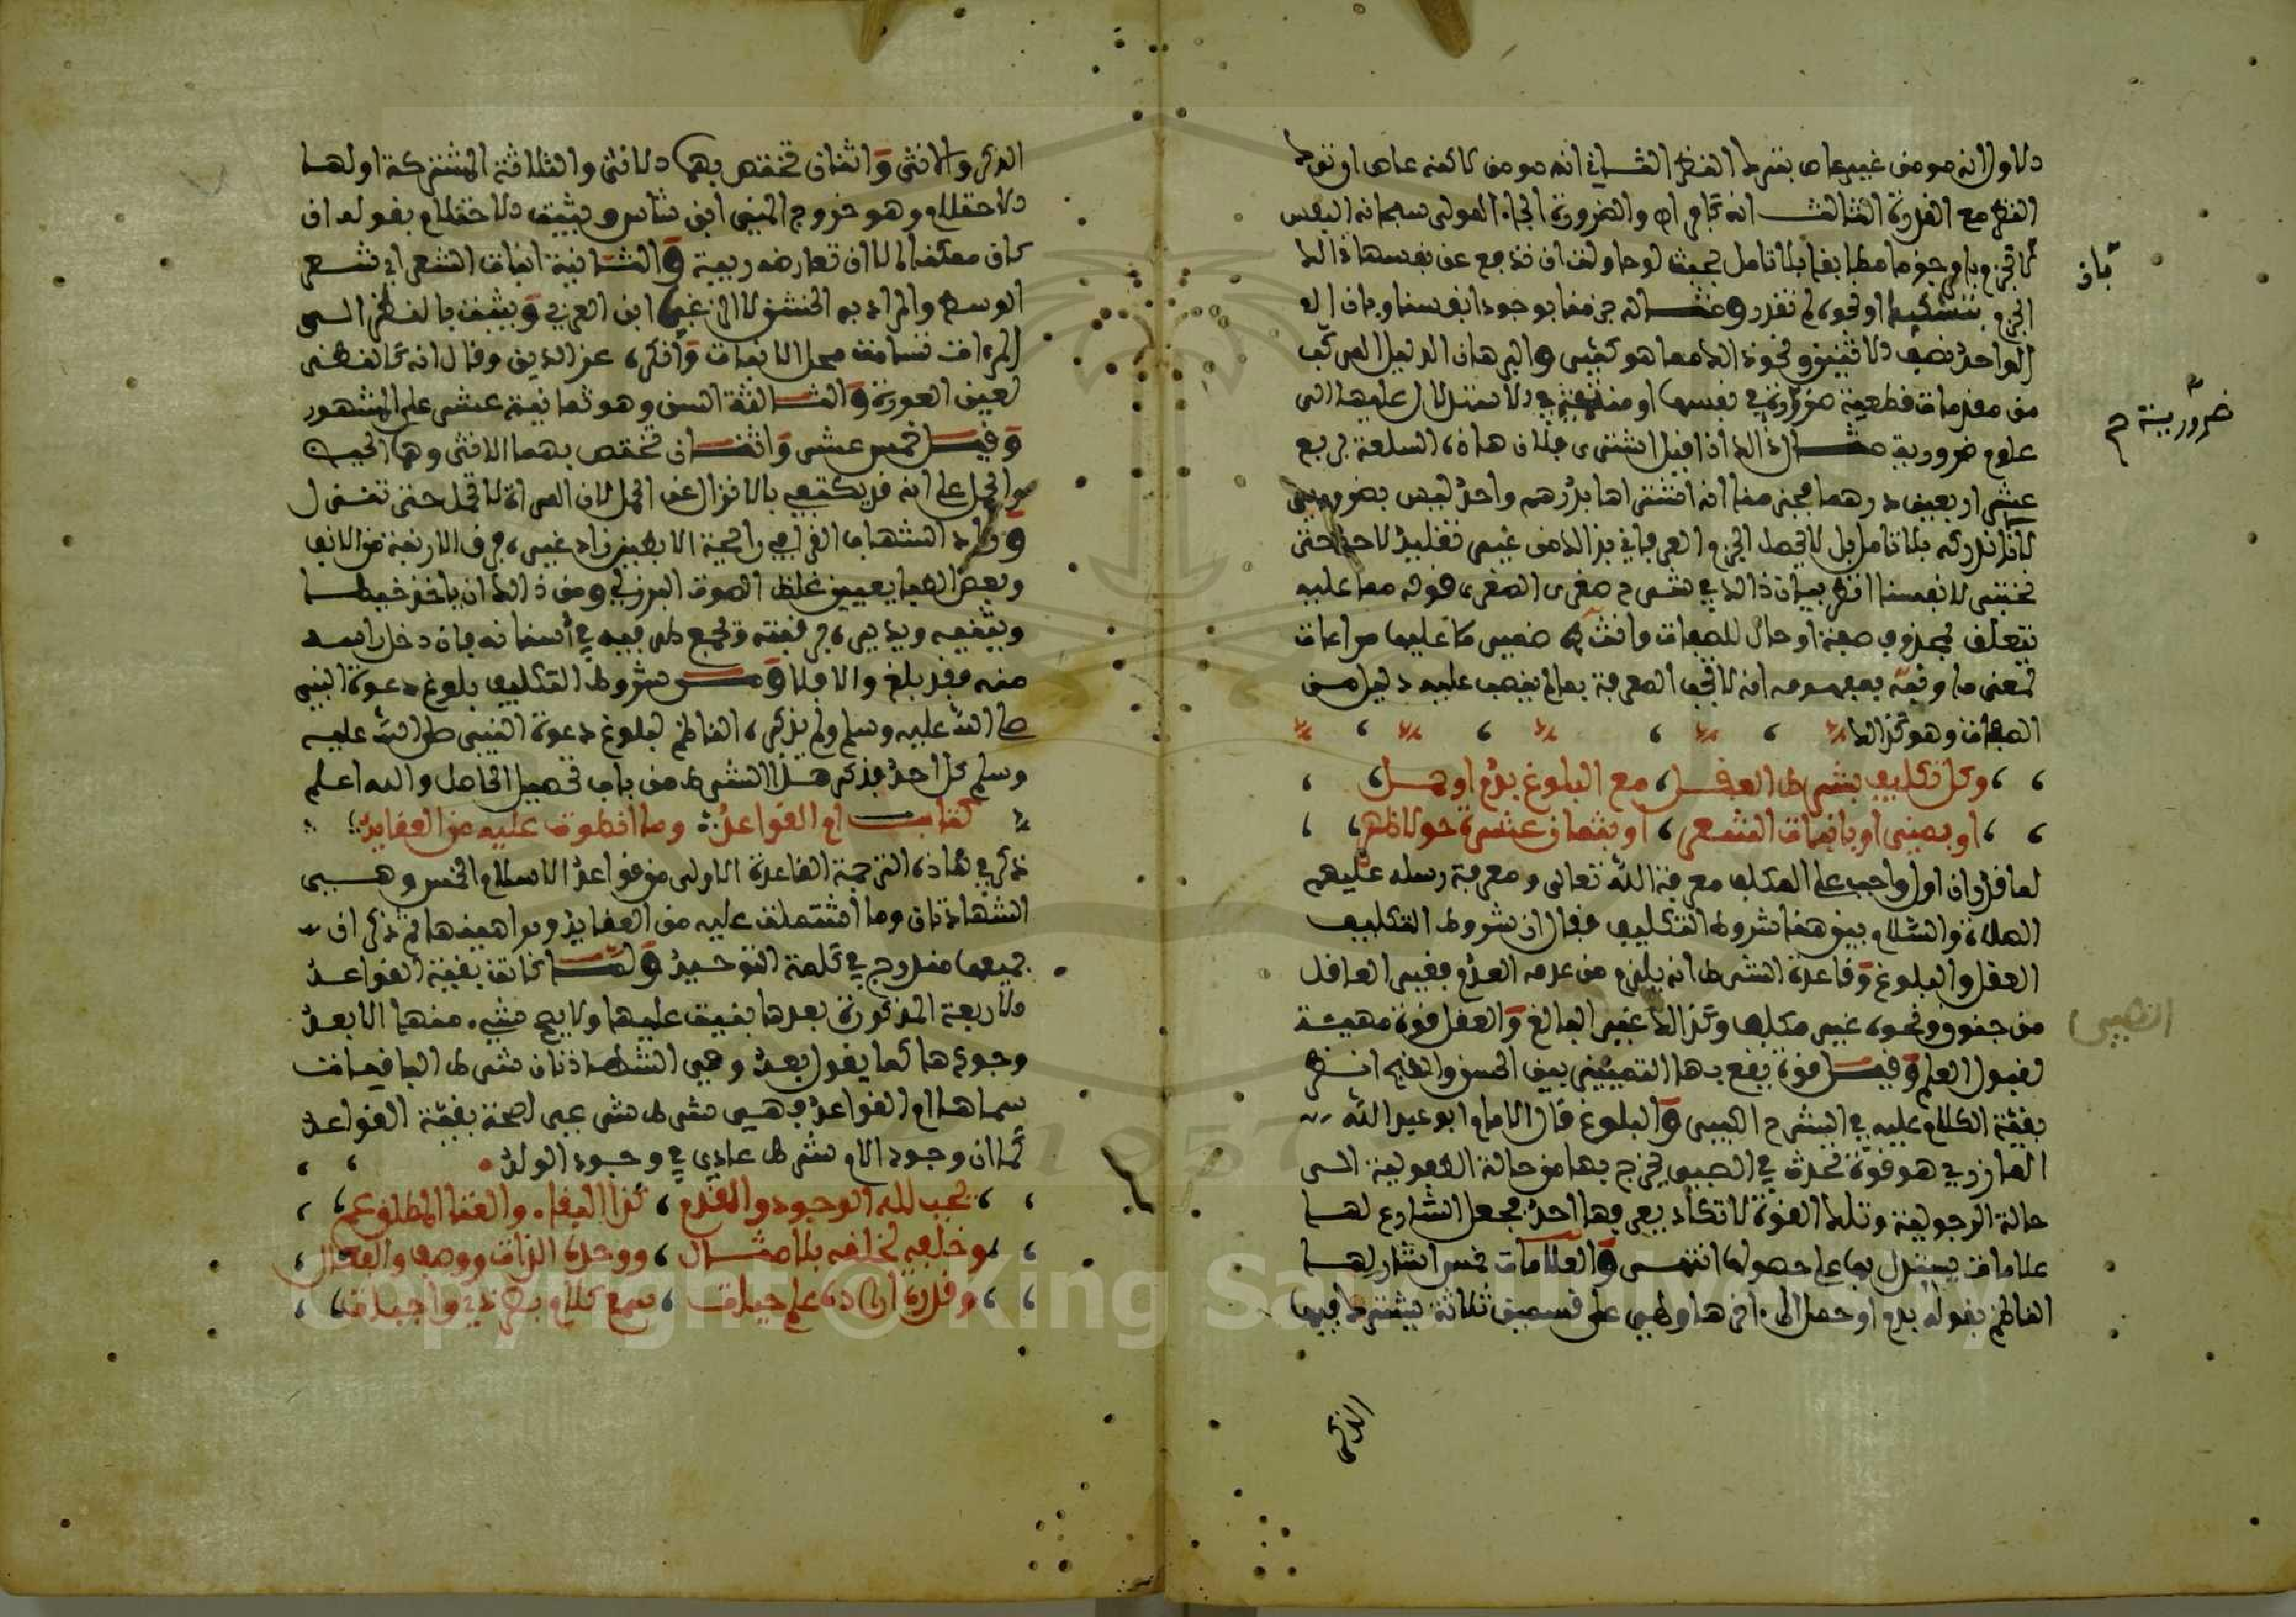 الاول انه مومن غير عاص بترك النظر الثاني انه مومن لاكنه عاص ان ترك
النظر مع القدرة الثالث انه كافر اه والضرورة الجاء المولى سبحانه النفس
لان تجزم بامر جزما مطابقا بلا تامل بحيث لو حاولت ان تدفع عن نفسها ذلك
الجزم بتشكيك او نحوه لم تقدر ومثاله جزمنا بوجود انفسنا وبان
الواحد نصف الاثنين ونحو ذلك مما هو كثير والبرهان الدليل المركب
من مقدمات قطعية ضرورة في نفسها او منتهية في الاستدلال عليها الى
علوم ضرورية مثال ذلك اذا قيل اشترى فلان هذه السلعة بربع
عشر اربعين درهما فجزمنا انه اشتراها بدرهم واحد ليس بضروري
لانا لا ندركه بلا تامل بل لا يحصل الجزم والمعرفة في بذلك من غير تقليد لاحد حتى
نختبر لانفسنا انظر بيان ذلك في شرح صغرى الصغرى قوله مما عليه
يتعلق بمحذوف صفة او حال للصفات وانث ضمير عليها مراعات
لمعنى ما وفهم بمفهومه انه لا تجب المعرفة بما لم ينصب عليه دليل من
الصفات وهو كذلك
وكل تكليف بشرط العقل، مع البلوغ بدم او حمل
او بمني او بانبات الشعر، او بثمان عشرة حولا ظهر
لما قرر ان اول واجب على المكلف معرفة الله تعالى ومعرفة رسله عليهم
الصلاة والسلام بين هنا شروط التكليف فقال ان شروط التكليف
العقل والبلوغ وقاعدة الشرط انه يلزم من عدمه العدم فغير العاقل
من جنون ونحوه غير مكلف وكذلك غير البالغ والعقل قوة مهيئة
لقبول العلم وقيل قوة يقع بها التمييز بين الحسن والقبيح انظر
بقية الكلام عليه في الشرح الكبير والبلوغ قال الامام ابو عبد الله
المازري هو قوة تحدث في الصبي يخرج بها من حالة الطفولية الى
حالة الرجولية وتلك القوة لا تكاد يعرفها احد فجعل الشارع لها
علامات يستدل بها على حصولها انتهى والعلامات خمس اشار لها
الناظم بقوله بدم او حمل الى اخرها وهي على قسمين ثلاثة يشترك فيها
بان
ضرورية م
الصبي
الذكر
الذكر والانثى واثنان تختص بهما الانثى والثلاثة المشتركة اولها
الاحتلام وهو خروج المني ابن شاس ويثبت الاحتلام بقوله ان
كان ممكنا الا ان تعارضه ريبة والثانية انبات الشعر اي شعر
الوسط والمراد به الخشن لا الزغب ابن العربي ويثبت بالنظر الى
المرءات تسامت محل الانبات وانكره عز الدين وقال انه كالنظر
لعين العورة والثالثة السن وهو ثمانية عشر على المشهور
وقيل خمس عشر واثنان تختص بهما الانثى وهما الحيض
والحمل على انه قد يكتفى بالانزال عن الحمل لان المراة لا تحمل حتى تنزل
وزاد الشهاب القرافي رائحة الابطين زاد غيره فرق الارنبة من الانف
وبعض المغاربيين غلظ الصوت البرزلي ومن ذلك ان ياخذ خيطا
ويثنيه ويديره برقبته ويجمع طرفيه في اسنانه فان دخل راسه
منه فقد بلغ والا فلا ومن شروط التكليف بلوغ دعوة النبي
صلى الله عليه وسلم ولم يذكره الناظم لبلوغ دعوة النبي صلى الله عليه
وسلم كل احد فذكر هذا الشرط من باب تحصيل الحاصل والله اعلم
كتاب ام القواعد وما انطوت عليه من العقايد
ذكر في هذه الترجمة القاعدة الاولى من قواعد الاسلام الخمس وهي
الشهادتان وما اشتملت عليه من العقايد وبراهينها ثم ذكر ان
جميعها مندرج في كلمة التوحيد ولما كانت بقية القواعد
الاربعة المذكورة بعدها بنيت عليها ولا يصح شيء منها الا بعد
وجودها كما يقول بعد وهي الشهادتان شرط الباقيات
سماها ام القواعد فهي شرط شرعي لصحة بقية القواعد
كما ان وجود الام شرط عادي في وجود الولد
يجب لله الوجود والقدم، كذا البقاء والغنا المطلق عم
وخلفه لخلقه بلا مثال، ووحدة الذات ووصف والفعال
وقدرة ارادة علم حيات، سمع كلام بصر ذي واجبات